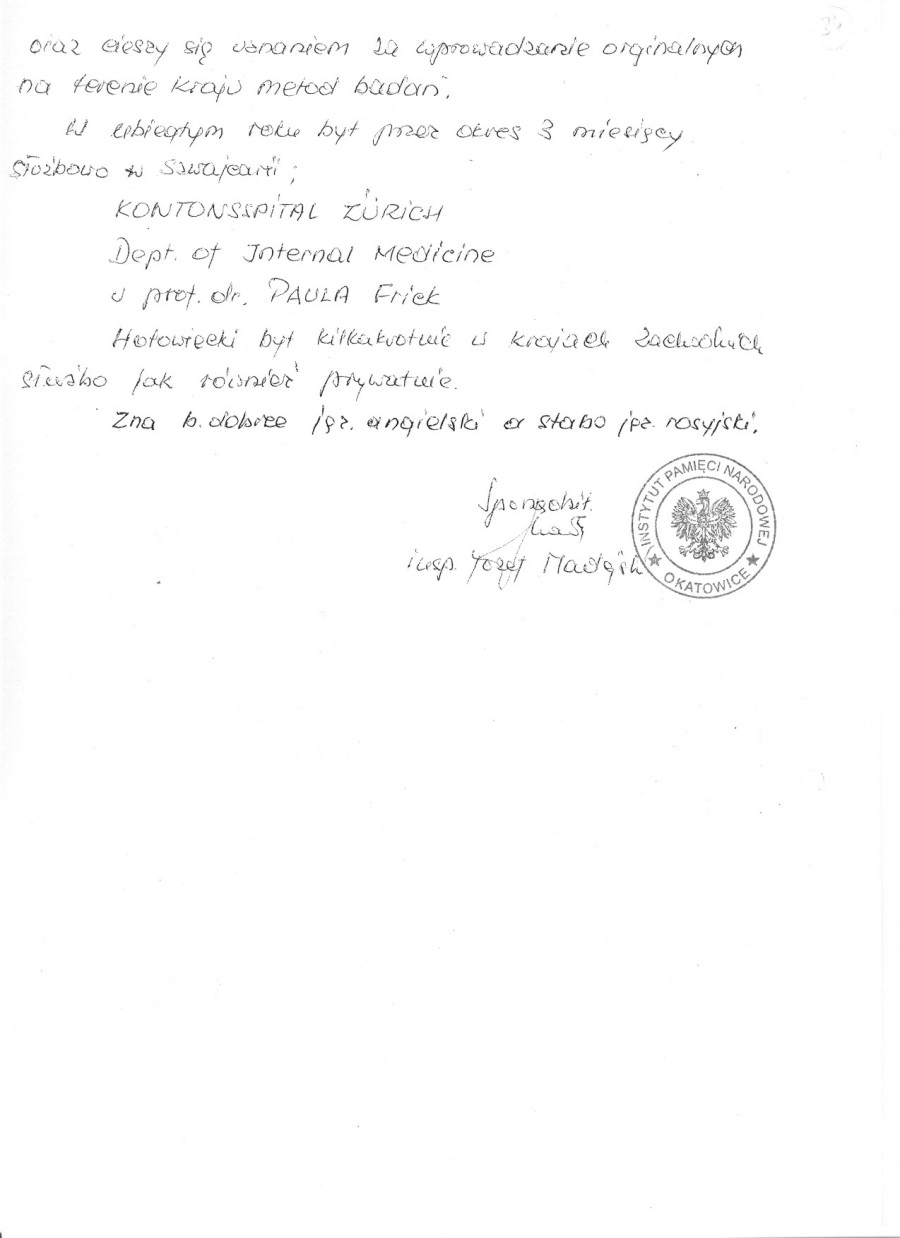 oraz cieszy się uznaniem za wprowadzanie orginalnych
na terenie kraju metod badań.
W ubiegłym roku był przez okres 3 miesięcy
służbowo w Szwajcarii;
KONTONSSPITAL ZÜRICH
Dept. of Internal Medicine
u prof. dr. PAULA Frick
Hołowiecki był kilkakrotnie w krajach zachodnich
służbo jak również prywatnie.
Zna b. dobrze jęz. angielski a słabo jęz. rosyjski.
Sporządził.
insp. Józef
INSTYTUT PAMIĘCI NARODOWEJ
O KATOWICE